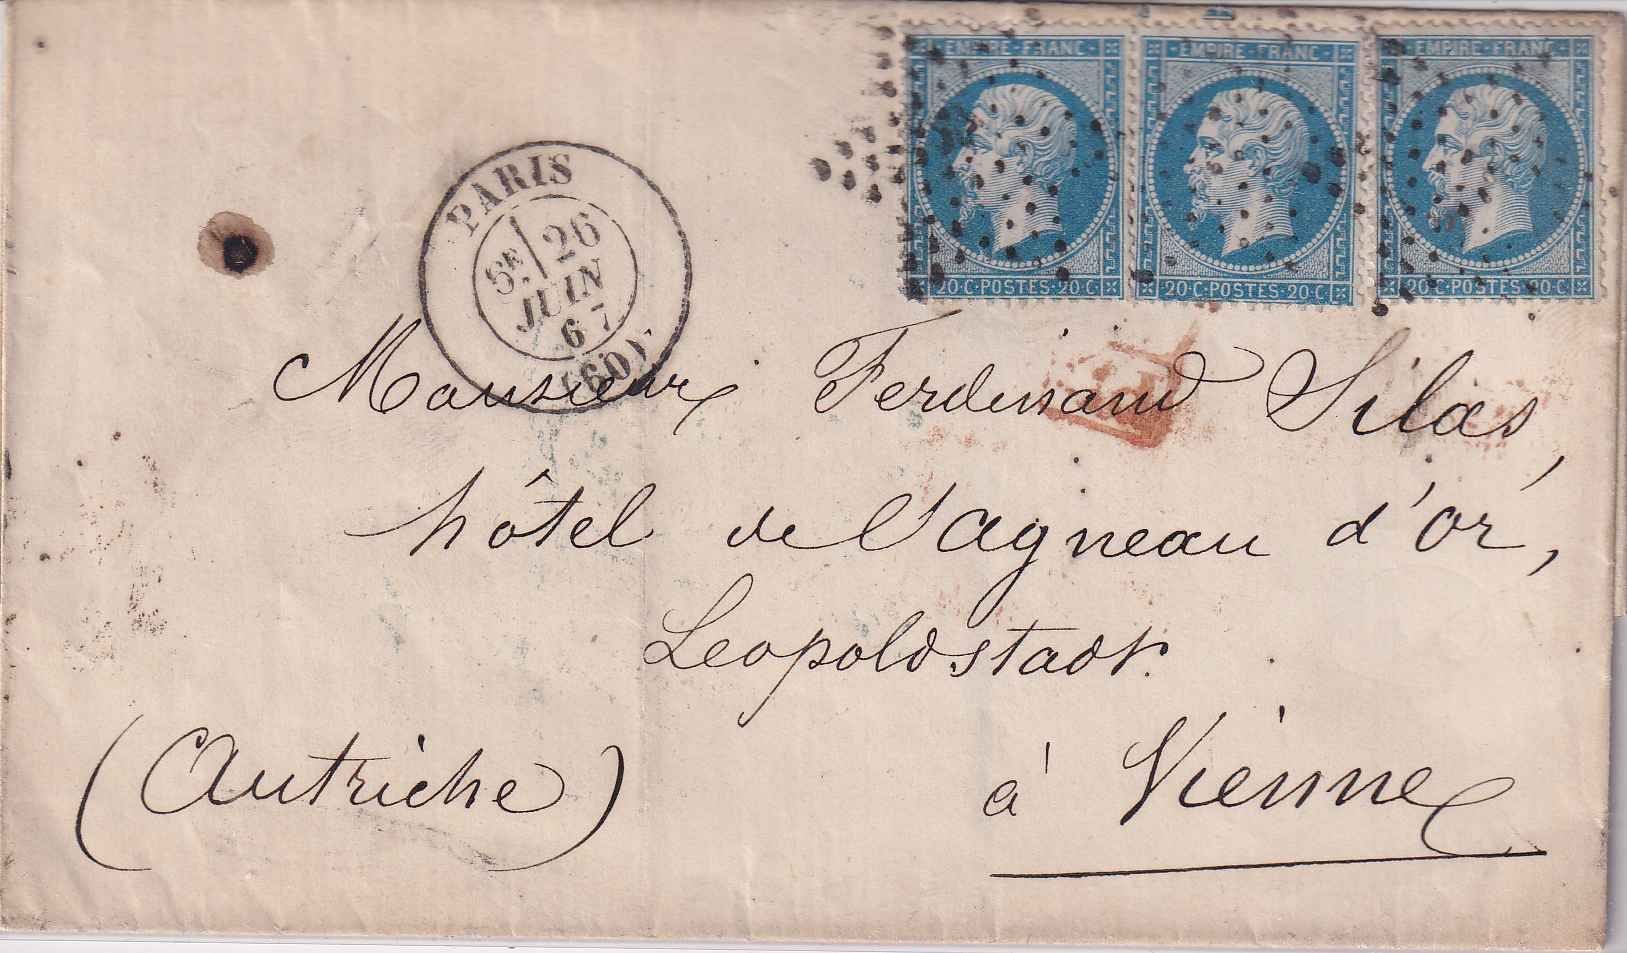 EMPIRE-FRANC- EMPIRE-FRANC- EMPIRE-FRANC-
20 C·POSTES·20 C· 20·C·POSTES·20·C· 20·C·POSTES·20·C·
PARIS
6E 26
JUIN
67
(60)
PD
Monsieur Ferdinand Silas,
hôtel de l'agneau d'or,
Leopoldstadt.
(Autriche) à Vienne